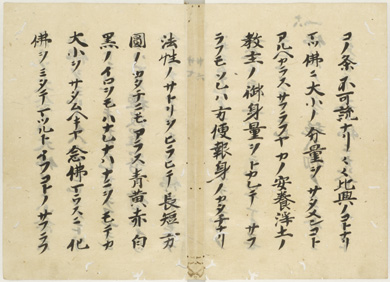 コノ条不可説ナリ〱比興ノコトナリ
マツ佛ニ大小ノ分量ヲサタメンコト
アルヘカラスサフラフヤカノ安養浄土ノ
教主ノ御身量ヲトカレテサフ
ラフモソレハ方便報身ノカタチナリ
法性ノサトリヲヒラヒテ長短方
圓ノカタチニモアラス青黄赤白
黒ノイロヲモハナレナハナニヲモテカ
大小ヲサタムヘキヤ念佛マウスニ化
佛ヲミタテマツルトイフコトノサフラフ